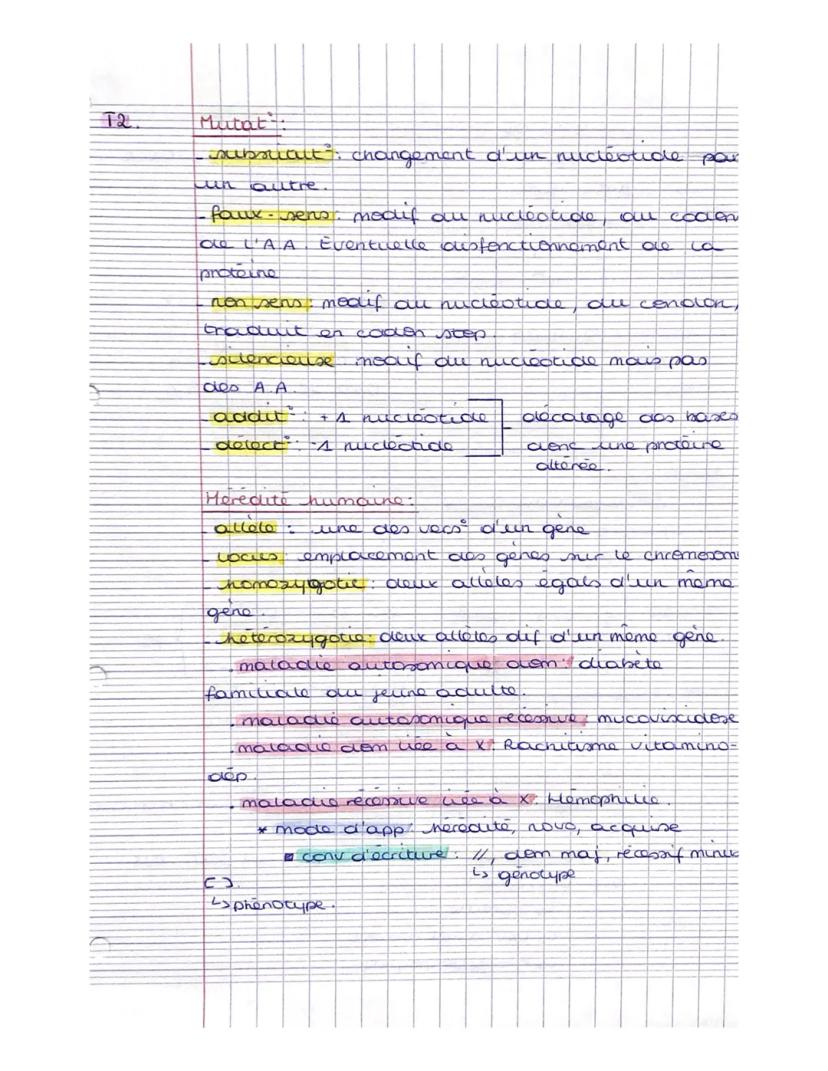 T2. Mutat°:
- substitut°: changement d'un nucléotide par
un autre.
- faux-sens: modif du nucléotide, du codon
de l'A.A. Éventuelle disfonctionnement de la
protéine
- non sens: modif du nucléotide, du condon,
traduit en codon stop.
- silencieuse: modif du nucléotide mais pas
des A.A.
- addit°: +1 nucléotide décalage des bases
- délect°: -1 nucléotide donc une protéine
altérée.
Hérédité humaine:
- allèle: une des vers° d'un gène
- locus: emplacement des gènes sur le chromosom
- homozygotie: deux allèles égals d'un même
gène.
- hétérozygotie: deux allèles dif d'un même gène.
. maladie autosomique dom: diabète
familiale du jeune adulte.
. maladie autosomique récessive: mucoviscidose
. maladie dom liée à X: Rachitisme vitamino-
dép.
. maladie récessive liée à X: Hémophilie.
* mode d'app: hérédité, novo, acquise
▪ conv d'écriture: //, dom maj, récessif minus
↳ génotype
[ ].
↳ phénotype.